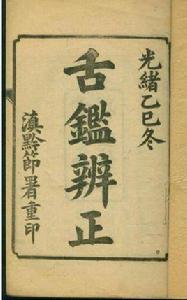 光緒乙巳冬
舌鑑辨正
滇黔節署重印